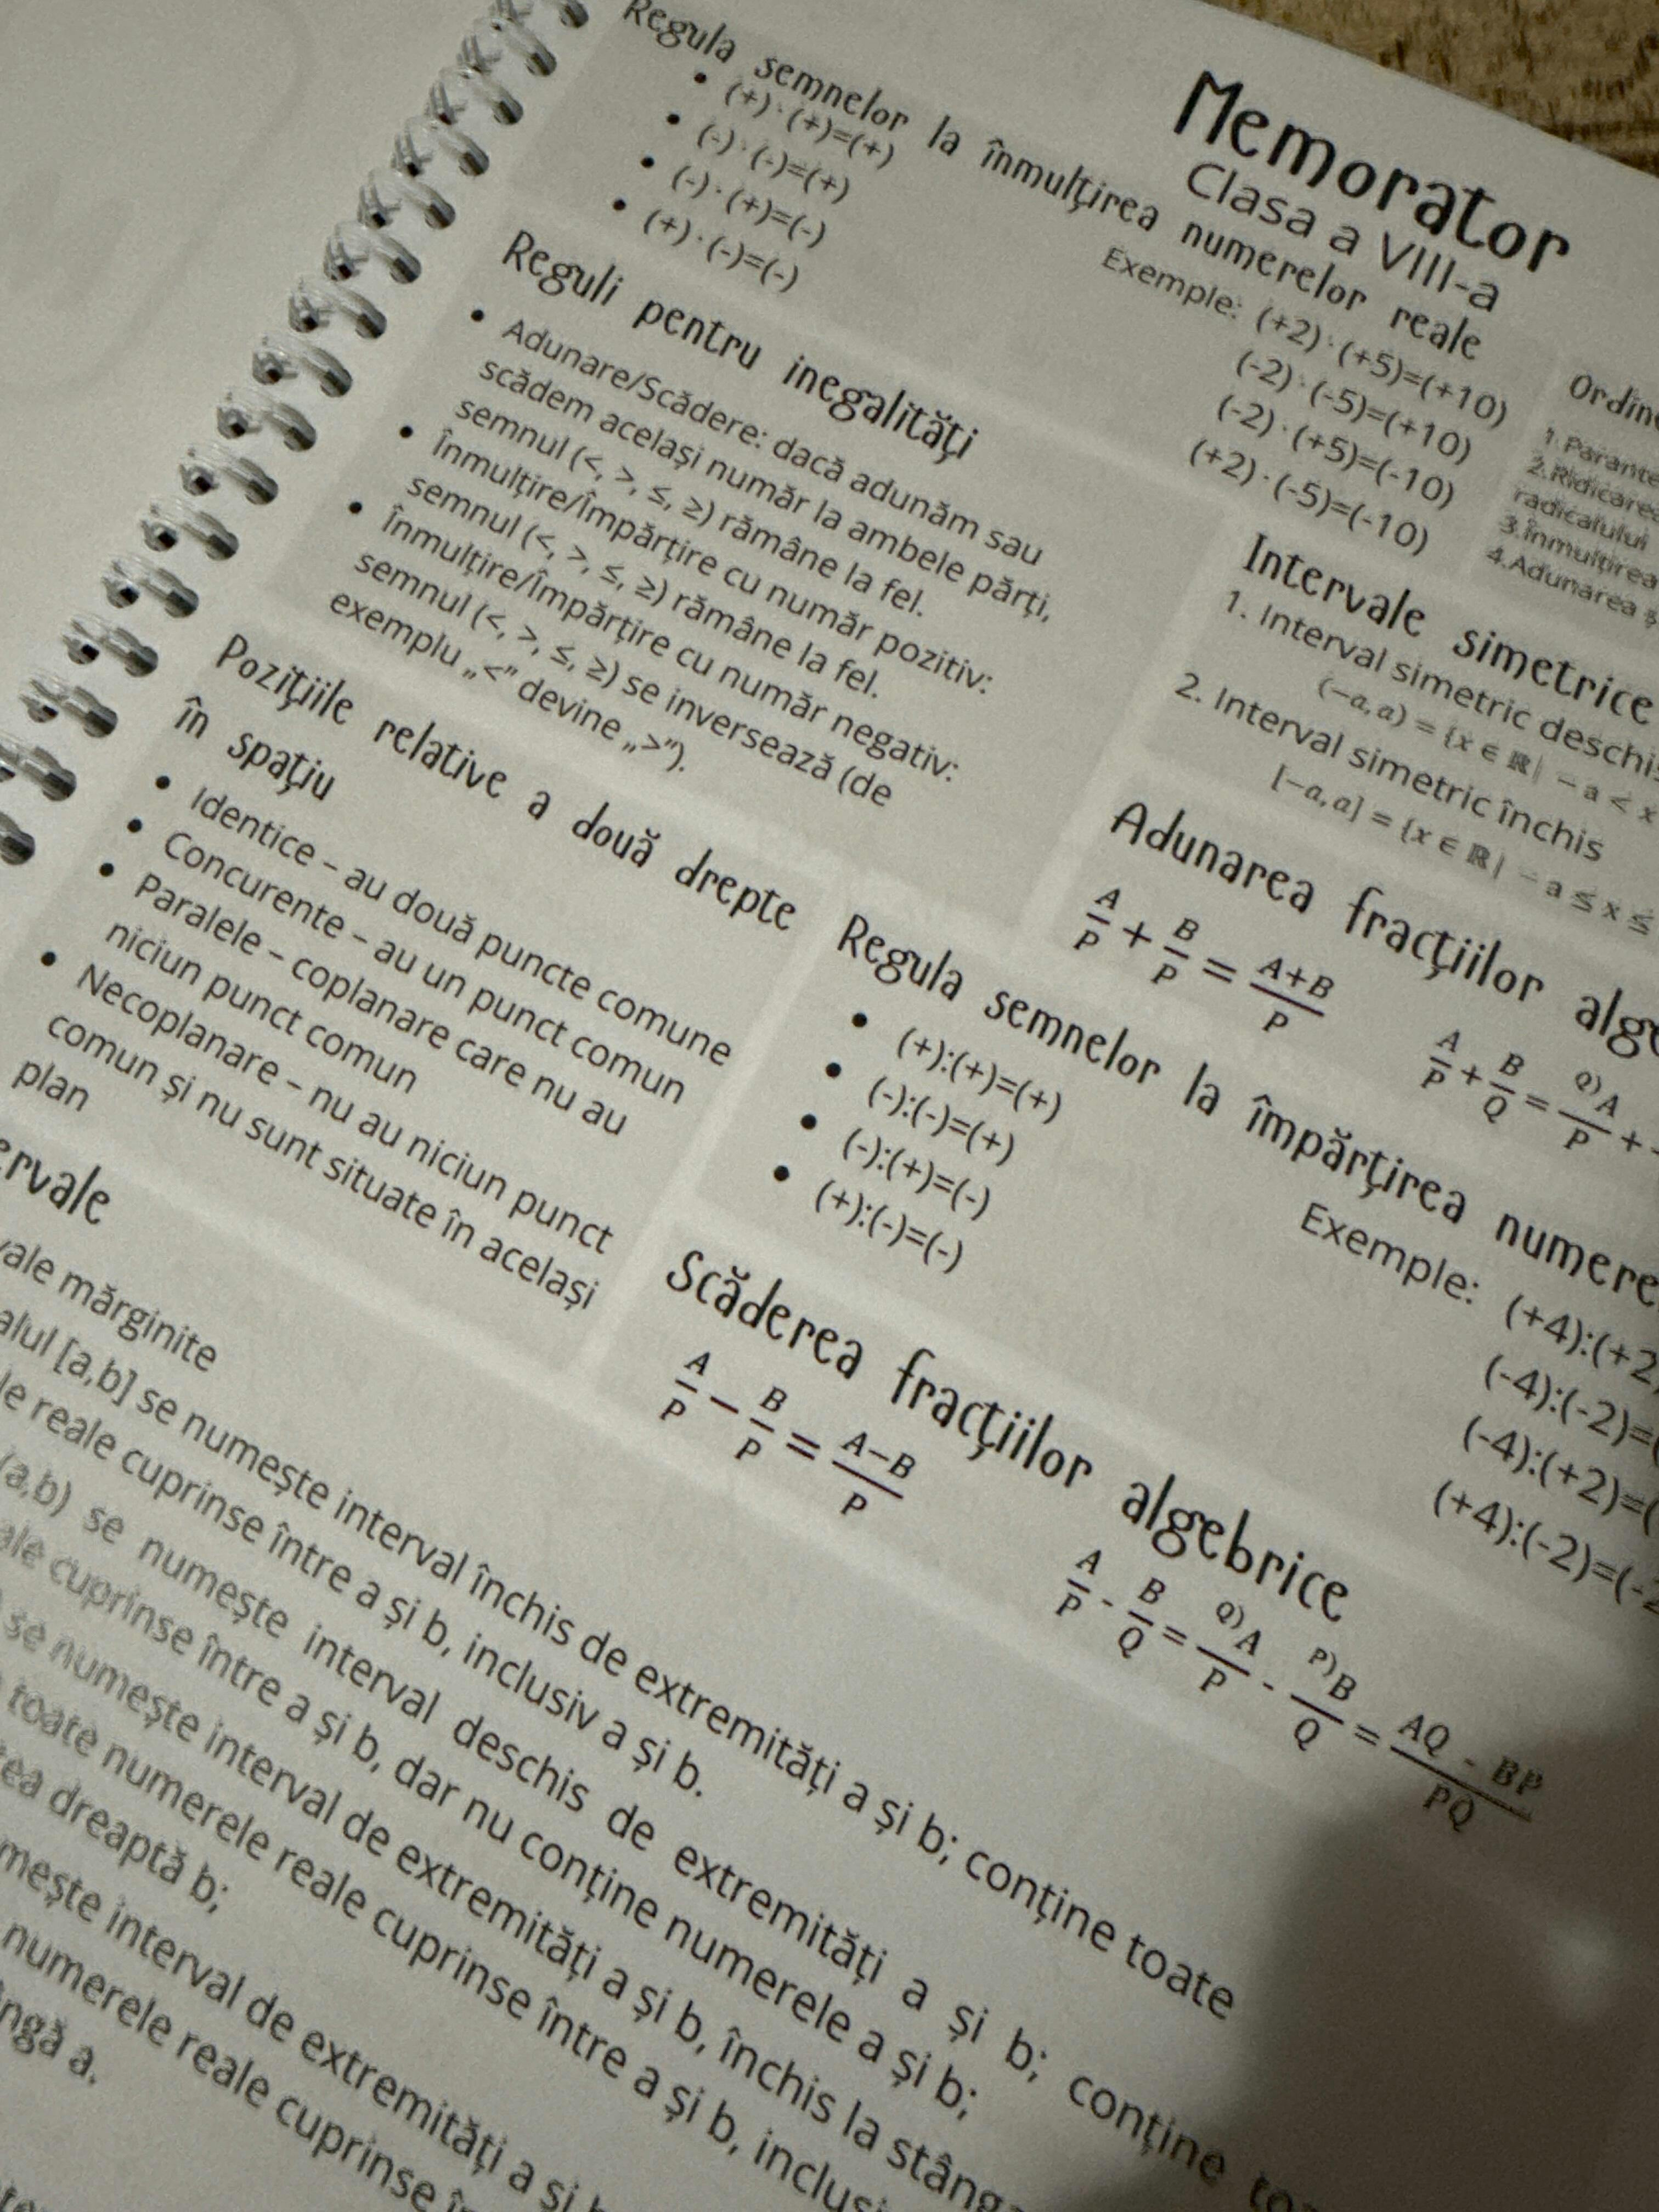 Memorator
Clasa a VIII-a
Regula semnelor la înmulțirea numerelor reale
• (+)·(+)=(+)
• (-)·(-)=(+)
• (-)·(+)=(-)
• (+)·(-)=(-)
Exemple: (+2)·(+5)=(+10)
(-2)·(-5)=(+10)
(-2)·(+5)=(-10)
(+2)·(-5)=(-10)
2.Ridicarea
radicalului
3.Înmulțirea
4.Adunarea
Reguli pentru inegalități
• Adunare/Scădere: dacă adunăm sau
scădem același număr la ambele părți,
semnul (<, >, ≤, ≥) rămâne la fel.
• Înmulțire/Împărțire cu număr pozitiv:
semnul (<, >, ≤, ≥) rămâne la fel.
• Înmulțire/Împărțire cu număr negativ:
semnul (<, >, ≤, ≥) se inversează (de
exemplu „<” devine „>”).
Intervale simetrice
1. Interval simetric
(−a,a) = {x ∈ ℝ| − a < x
2. Interval simetric închis
[−a,a] = {x ∈ ℝ| − a ≤ x ≤
Pozițiile relative a două drepte
în spațiu
• Identice – au două puncte comune
• Concurente – au un punct comun
• Paralele – coplanare care nu au
niciun punct comun
• Necoplanare – nu au niciun punct
comun și nu sunt situate în același
plan
Adunarea fracțiilor
A/P + B/P = A+B/P
A/P + B/Q = Q)A/P +
Regula semnelor la împărțirea
• (+):(+)=(+)
• (-):(-)=(+)
• (-):(+)=(-)
• (+):(-)=(-)
Exemple: (+4):(+2
(-4):(-2)=(
(-4):(+2)=(
(+4):(-2)=(-2
Scăderea fracțiilor algebrice
A/P − B/P = A−B/P
A/P - B/Q = Q)A/P - P)B/Q = AQ - BP/PQ
mărginite
[a,b] se numește interval închis de extremități a și b; conține toate
reale cuprinse între a și b, inclusiv a și b.
(a,b) se numește interval deschis de extremități a și b; conține
cuprinse între a și b, dar nu conține numerele a și b;
se numește interval de extremități a și b, închis la
toate numerele reale cuprinse între a și b,
dreaptă b;
interval de extremități a și
numerele reale cuprinse
a.